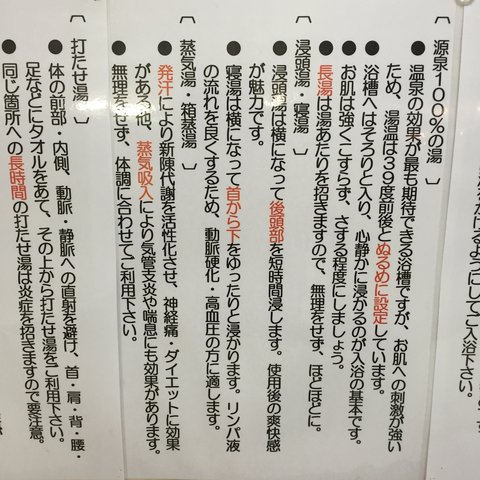 かけるようにしてご入浴下さい。
〔源泉100%の湯〕
●温泉の効果が最も期待できる浴槽ですが、お肌への刺激が強い
ため、湯温は39度前後とぬるめに設定しています。
●浴槽へはそろりと入り、心静かに浸かるのが入浴の基本です。
●お肌は強くこすらず、さする程度にしましょう。
●長湯は湯あたりを招きますので、無理をせず、ほどほどに。
〔浸頭湯・寝湯〕
●浸頭湯は横になって後頭部を短時間浸します。使用後の爽快感
が魅力です。
●寝湯は横になって首から下をゆったりと浸かります。リンパ液
の流れを良くするため、動脈硬化・高血圧の方に適します。
〔蒸気湯・箱蒸湯〕
●発汗により新陳代謝を活性化させ、神経痛・ダイエットに効果
がある他、蒸気吸入により気管支炎や喘息にも効果があります。
●無理をせず、体調に合わせてご利用下さい。
〔打たせ湯〕
●体の前部・内側、動脈・静脈への直射を避け、首・肩・背・腰・
足などにタオルをあて、その上から打たせ湯をご利用下さい。
●同じ箇所への長時間の打たせ湯は炎症を招きますので要注意。